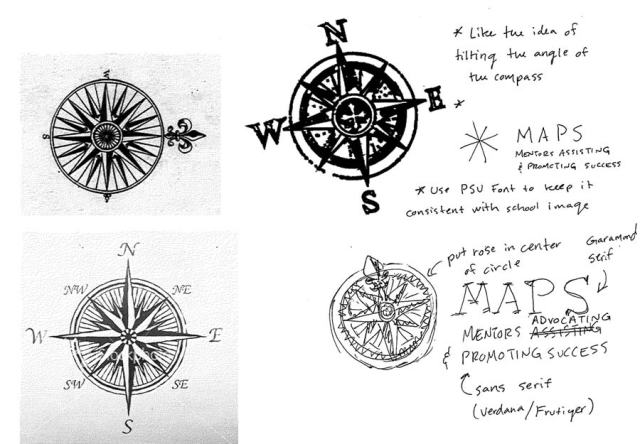 W
S
N
NW
NE
W
E
SW
SE
S
N
E
W
S
* Like the idea of
tilting the angle of
the compass
*
MAPS
MENTORS ASSISTING
& PROMOTING SUCCESS
* Use PSU Font to keep it
consistent with school image
put rose in center
of circle
Garamond
serif
MAPS
ADVOCATING
MENTORS ASSISTING
& PROMOTING SUCCESS
sans serif
(Verdana/Frutiger)